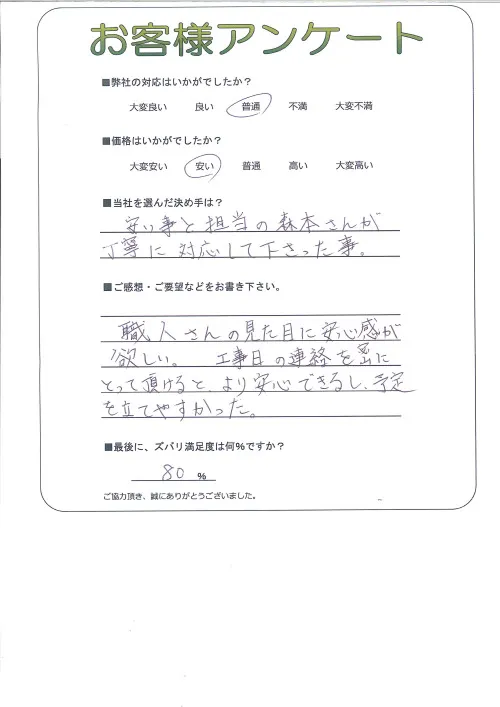 お客様アンケート
■弊社の対応はいかがでしたか？
大変良い 良い 普通 不満 大変不満
■価格はいかがでしたか？
大変安い 安い 普通 高い 大変高い
■当社を選んだ決め手は？
安い事と担当の森本さんが
丁寧に対応して下さった事。
■ご感想・ご要望などをお書き下さい。
職人さんの見た目に安心感が
欲しい。 工事日の連絡を密に
とって頂けると、より安心できるし、予定
を立てやすかった。
■最後に、ズバリ満足度は何％ですか？
80 %
ご協力頂き、誠にありがとうございました。